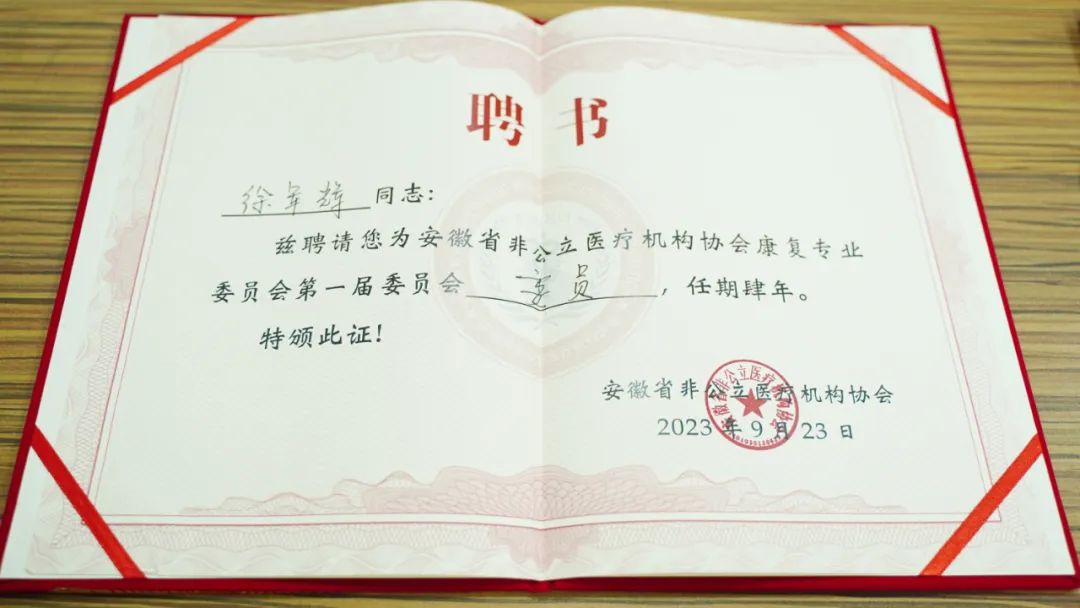 聘书
徐军辉同志：
兹聘请您为安徽省非公立医疗机构协会康复专业
委员会第一届委员会委员，任期肆年。
特颁此证！
安徽省非公立医疗机构协会
2023年9月23日
安徽省非公立医疗机构协会